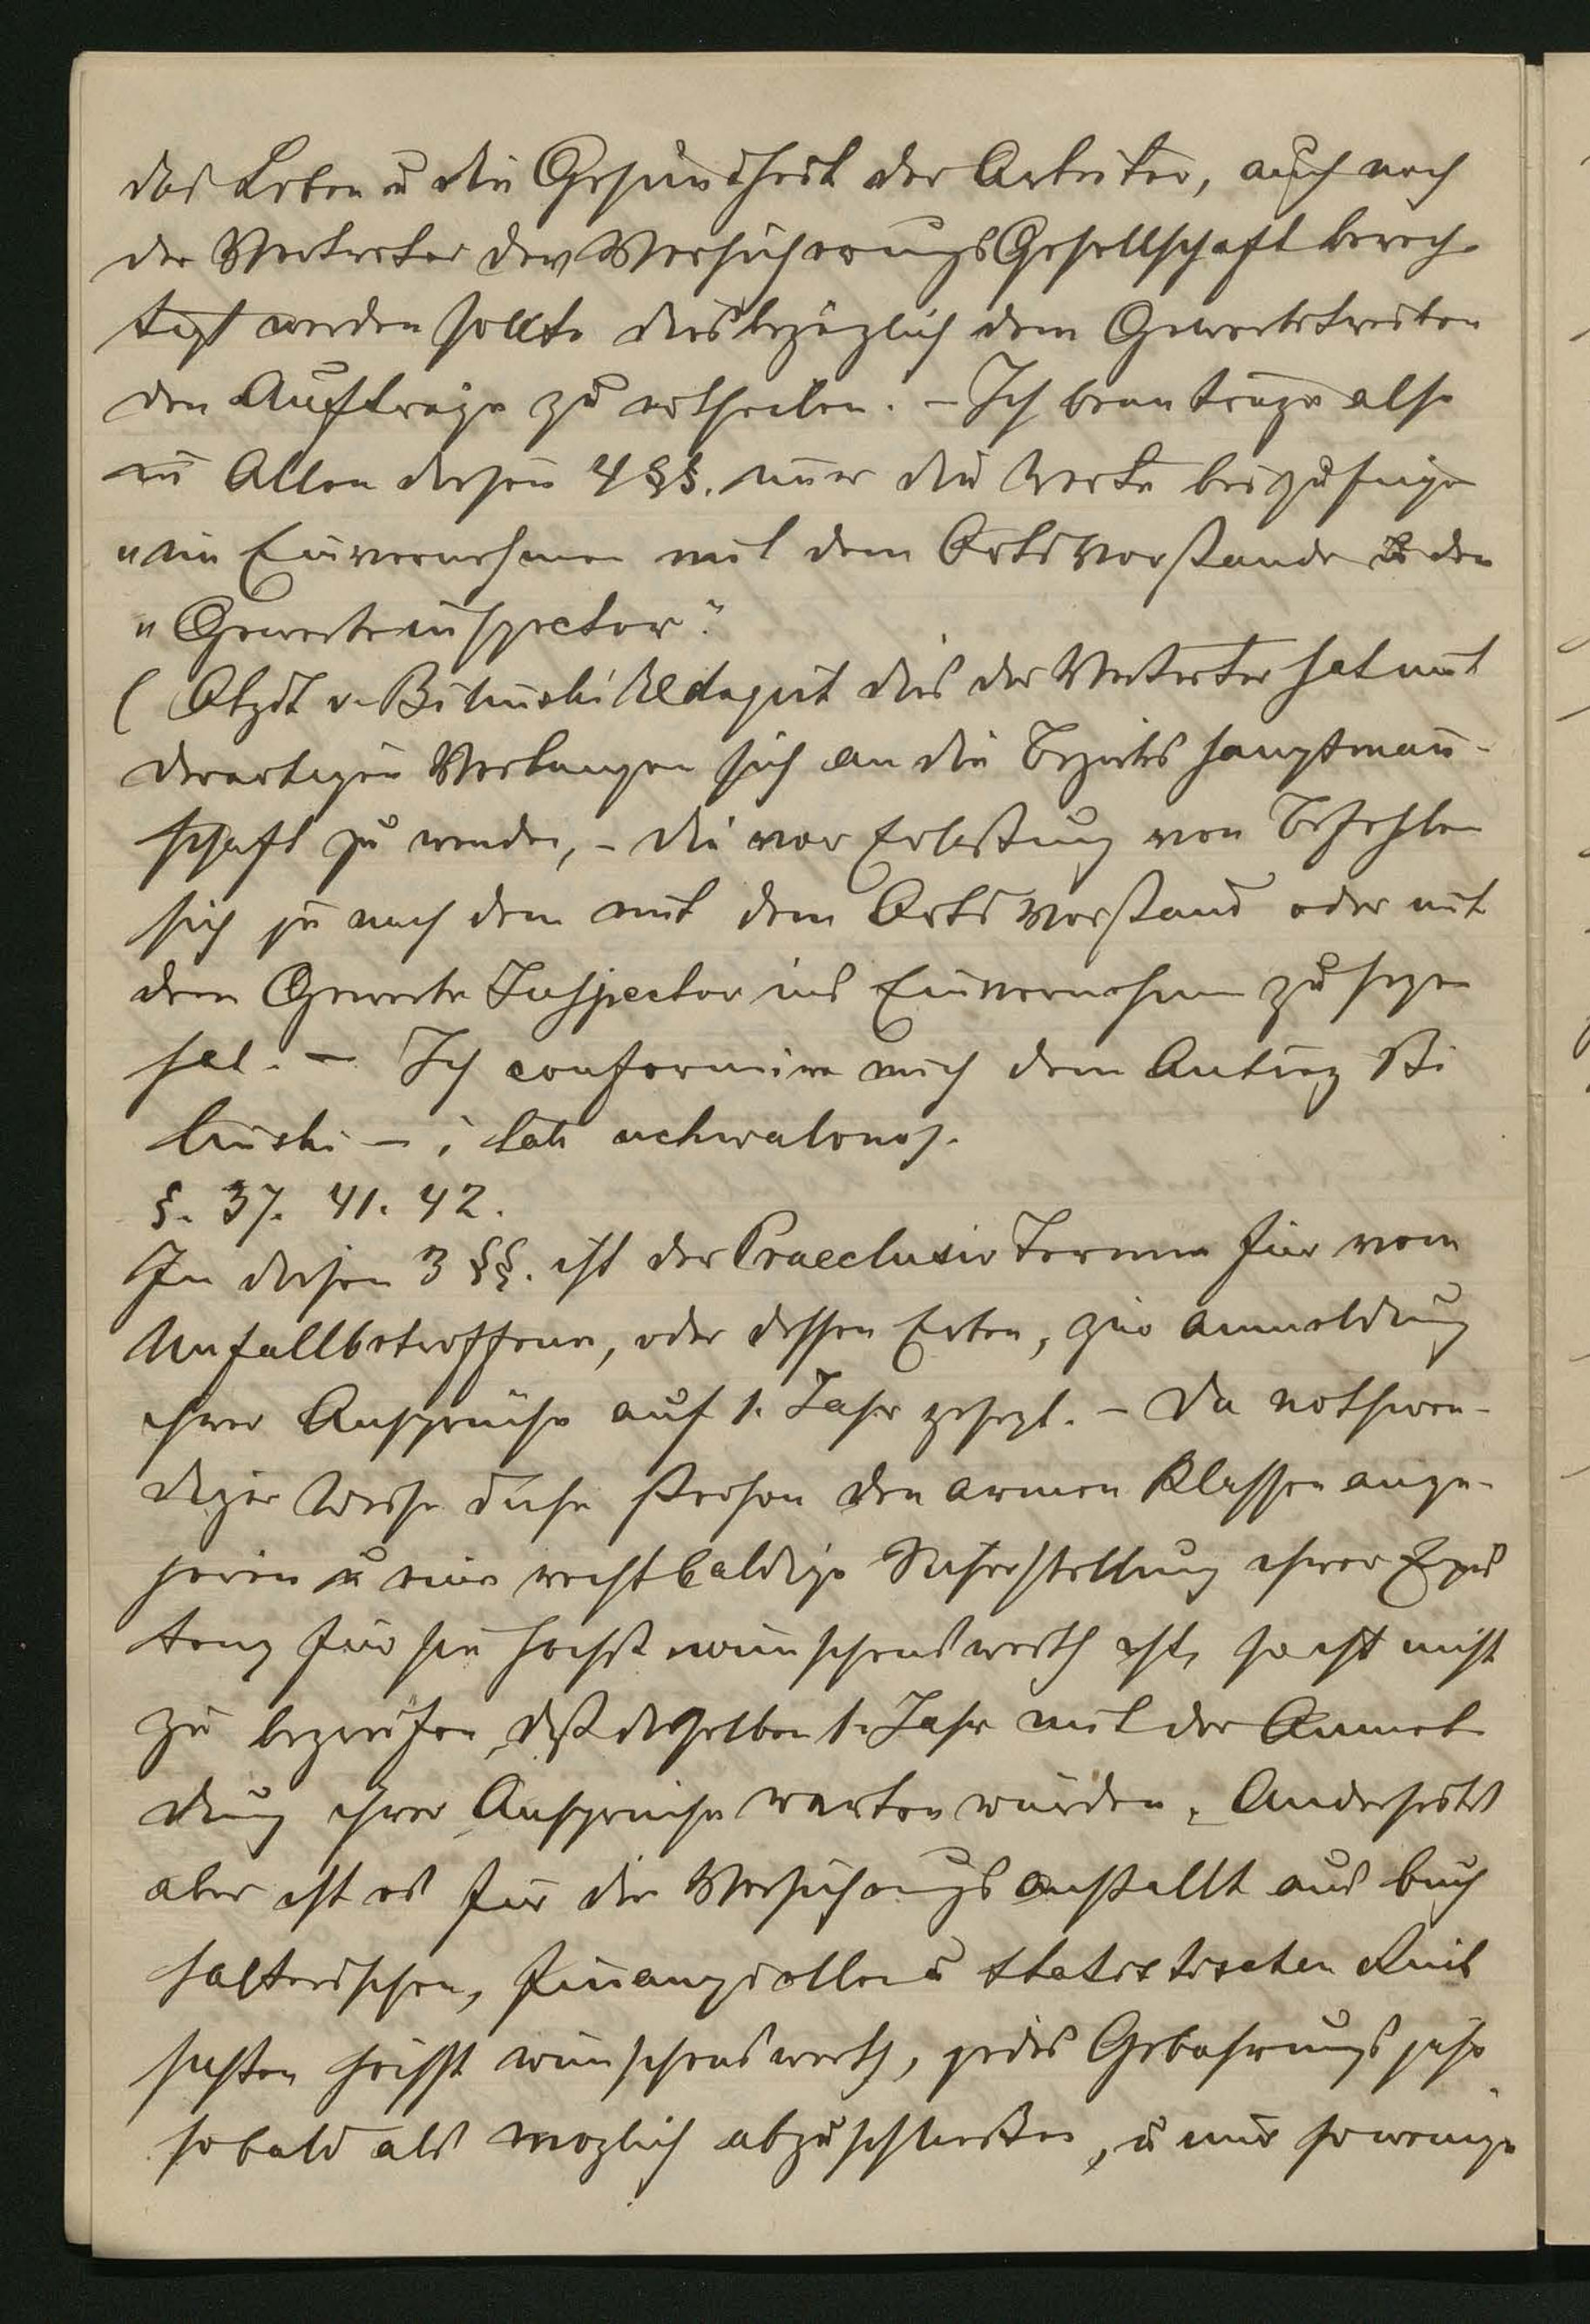 das Leben u die Gesundheit der Arbeiter, auch noch
der Vertreter der VersicherungsGesellschaft berech-
tigt werden sollte diesbezüglich dem Gewerbetreiben
den Aufträge zu ertheilen. – Ich beantrage also
in Allen diesen 4 §§. nur die Worte beizufügen
"im Einvernehmen mit dem Ortsvorstande den
"Gewerbeinspector".
( Abgdt v. Bilinski sagt das der Vertreter hat mit
derartigen Verlangen sich an die Bezirkshauptman̄-
schaft zu wenden, – die vor Erlassung von Befehlen
sich je nach dem mit dem Ortsvorstand oder mit
dem Gewerbe Inspector ins Einvernehmen zu sezen
hat. – Ich conformire mich dem Antrag Bi
linski – i tak uchwalono).
§. 37. 41. 42.
In diesen 3 §§. ist der Praeclusiv Termin für vom
Unfallbetroffenen, oder dessen Erben, zur Anmeldung
ihrer Ansprüche auf 1. Jahr gesezt. – Da nothwen-
diger Weise diese Person den armen Klassen ange-
hören u eine recht baldige Sicherstellung ihrer Exis
tenz für sie höchst wünschenswerth ist, so ist nicht
zu begreifen, daß dieselben 1. Jahr mit der Anmel
dung ihrer Ansprüche warten würden. Anderseits
aber ist es für die Versicherungsanstallt aus buch
halterischen, finanziellen u statistischen Rück
sichten höchst wünschenswerth, jedes Gebahrungsjahr
sobald als möglich abzuschließen, u nur so wenige